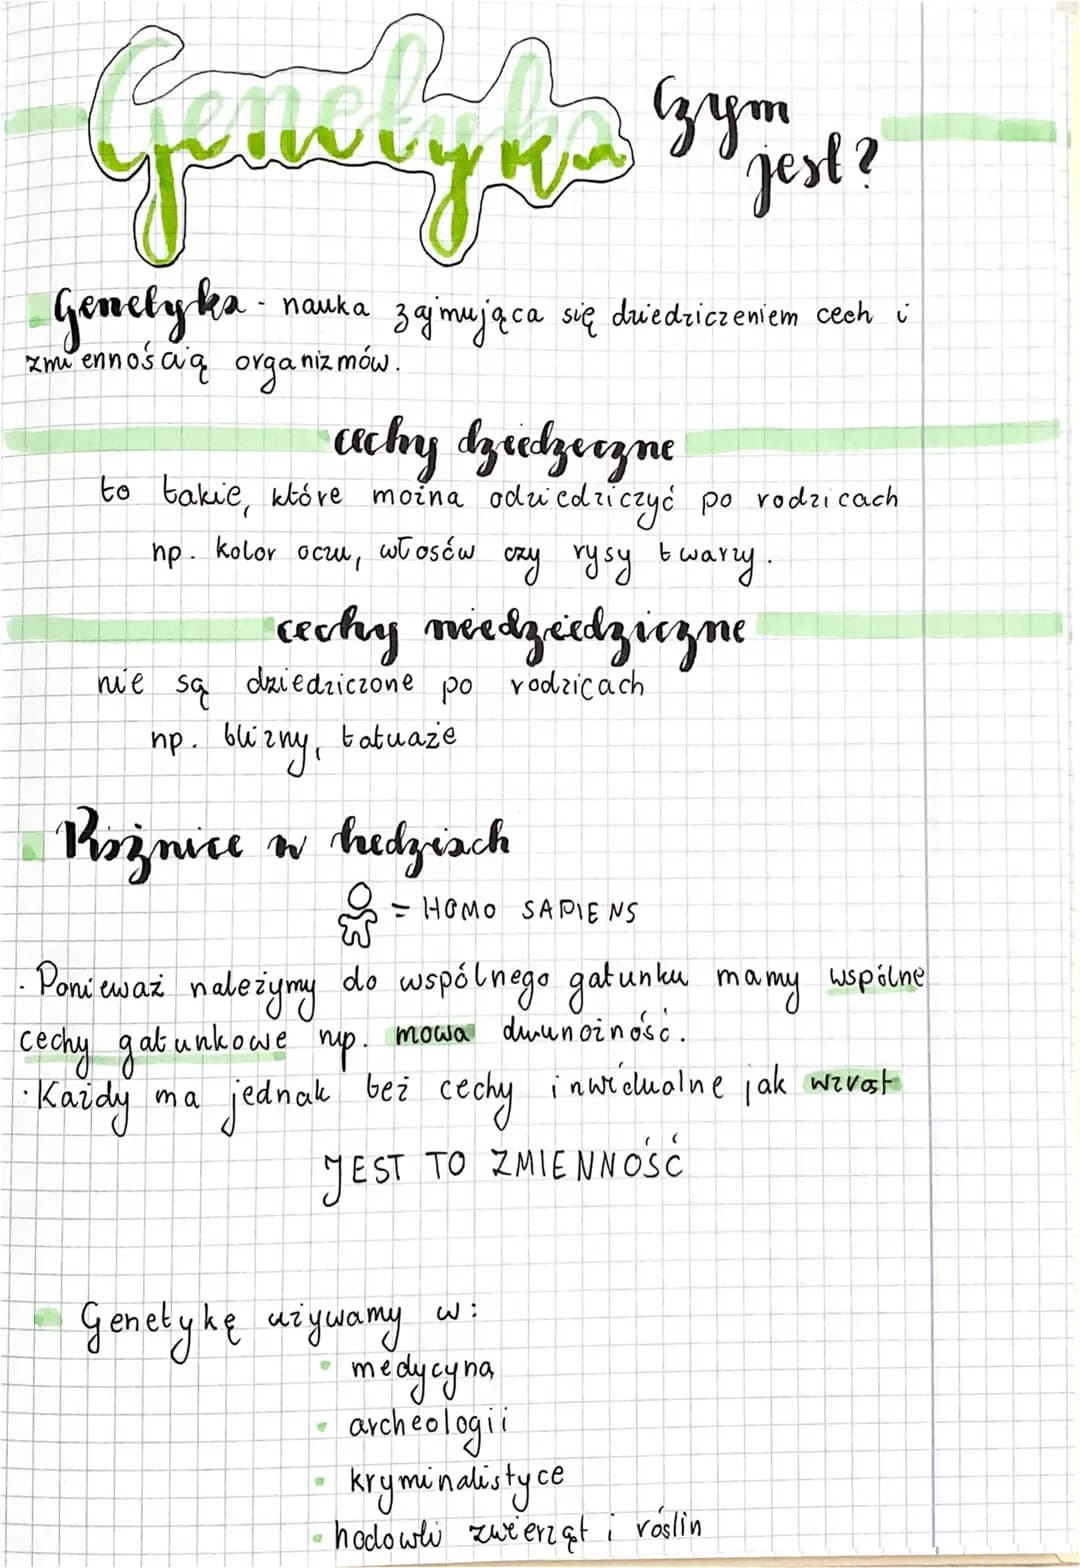 Genetyka Czym
jest?
Genetyka - nauka zajmująca się dziedziczeniem cech i
zmiennością organizmów.
cechy dziedziczne
to takie, które można odziedziczyć po rodzicach
np. kolor oczu, włosów czy rysy twarzy.
cechy niedziedziczne
nie są dziedziczone po rodzicach
np. blizny, tatuaże
Różnice w ludziach
= HOMO SAPIENS
· Ponieważ należymy do wspólnego gatunku mamy wspólne
cechy gatunkowe np. mowa dwunożność.
· Każdy ma jednak też cechy inwidualne jak wzrost
JEST TO ZMIENNOŚĆ
Genetykę używamy w:
• medycyną
• archeologii
• kryminalistyce
• hodowli zwierząt i roślin